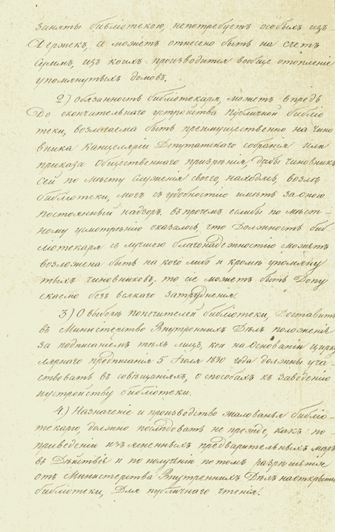 заняты библиотекою, непотребует особыхъ из-
держек, а можетъ отнесено быть на счетъ
сумъ, изъ коихъ производится вообще отопленіе
упомянутыхъ домовъ.
2) обязанность библиотекаря, можетъ впредь
до окончательнаго устройства публичной библіо-
теки, возлагаема быть преимущественно на чинов-
ника Канцеляріи Депутатскаго собранія или
приказа Общественнаго призрѣнія, дабы чиновникъ
сей по мѣсту служенія своего, находясь возлѣ
библіотеки, могъ съ удобностію имѣть за оною
постоянный надзоръ, впрочемъ еслибы по мѣст-
ному усмотрѣнію оказалось, что должность биб-
лиотекаря съ лучшею благонадежностію можетъ
возложена быть на кого либо и кромѣ упомяну-
тыхъ чиновниковъ, то сіе можетъ быть допу-
скаемо безъ всякаго затрудненія.
3) О выборѣ попечителей библіотеки, доставить
въ Министерство Внутреннихъ Дѣлъ положеніе
за подписаніемъ тѣхъ лицъ, кои на основаніи цирку-
лярнаго предписанія 5 Іюля 1830 года должны уча-
ствовать въ совѣщаніяхъ, о способахъ къ заведенію
и устройству библіотеки.
4) Назначеніе и производство жалованья библіо-
текарю, должно послѣдовать не прежде какъ по
приведеніи изъясненныхъ предварительныхъ мѣръ
въ дѣйствіе и по полученіи потомъ разрѣшенія
отъ Министерства Внутреннихъ Дѣлъ на открытіе
библіотеки, для публичнаго чтенія.